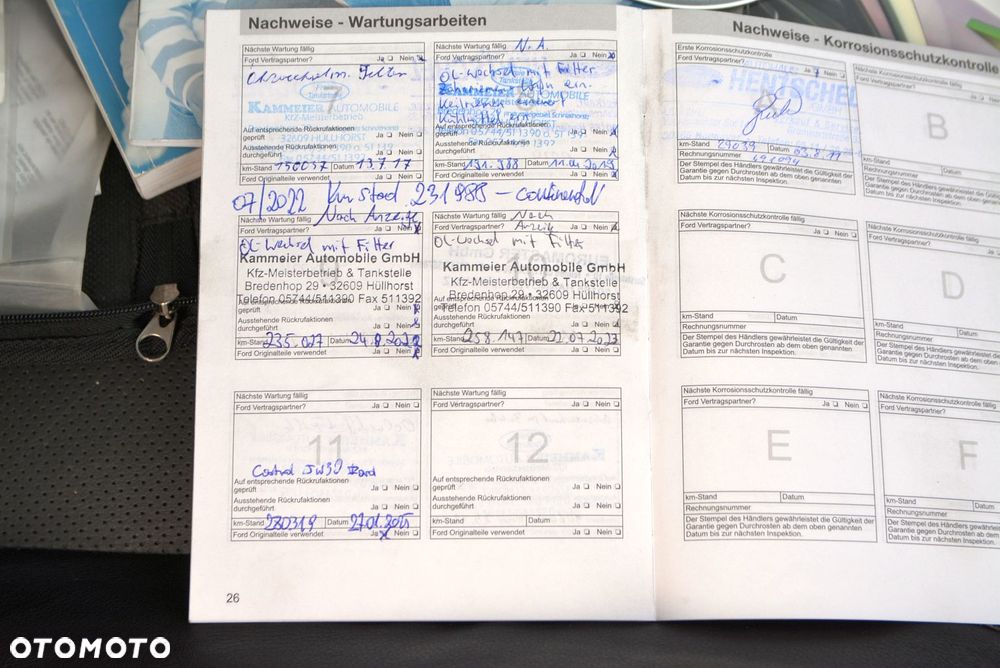 Nachweise - Wartungsarbeiten
Nächste Wartung fällig
Ford Vertragspartner? Ja Nein
Ölwechsel m. Filter
KAMMEIER AUTOMOBILE
Kfz-Meisterbetrieb
Auf entsprechende Rückrufaktionen
geprüft Ja Nein
Ausstehende Rückrufaktionen
durchgeführt Ja Nein
km-Stand 150037 Datum 13.7.17
Ford Originalteile verwendet Ja Nein
Nächste Wartung fällig N.A.
Ford Vertragspartner? Ja Nein
ÖL-Wechsel mit Filter
Auf entsprechende Rückrufaktionen
geprüft Ja Nein
Ausstehende Rückrufaktionen
durchgeführt Ja Nein
km-Stand 191.988 Datum 2019
Ford Originalteile verwendet Ja Nein
07/2022 Km Stad 231988 - continental
Nächste Wartung fällig Nach Anzeige
Ford Vertragspartner? Ja Nein
ÖL-Wechsel mit Filter
Kammeier Automobile GmbH
Kfz-Meisterbetrieb & Tankstelle
Bredenhop 29 • 32609 Hüllhorst
Telefon 05744/511390 Fax 511392
Auf entsprechende Rückrufaktionen
geprüft Ja Nein
Ausstehende Rückrufaktionen
durchgeführt Ja Nein
km-Stand 235.027 Datum 24.8.2022
Ford Originalteile verwendet Ja Nein
Nächste Wartung fällig Nach
Ford Vertragspartner? Anzeige Ja Nein
ÖL-Wechsel mit Filter
10
Kammeier Automobile GmbH
Kfz-Meisterbetrieb & Tankstelle
Bredenhop 29 • 32609 Hüllhorst
Telefon 05744/511390 Fax 511392
Auf entsprechende Rückrufaktionen
geprüft Ja Nein
Ausstehende Rückrufaktionen
durchgeführt Ja Nein
km-Stand 258.147 Datum 22.07.2023
Ford Originalteile verwendet Ja Nein
Nächste Wartung fällig
Ford Vertragspartner? Ja Nein
11
Castrol 5W30 Ford
Auf entsprechende Rückrufaktionen
geprüft Ja Nein
Ausstehende Rückrufaktionen
durchgeführt Ja Nein
km-Stand 280319 Datum 27.01.2025
Ford Originalteile verwendet Ja Nein
Nächste Wartung fällig
Ford Vertragspartner? Ja Nein
12
Auf entsprechende Rückrufaktionen
geprüft Ja Nein
Ausstehende Rückrufaktionen
durchgeführt Ja Nein
km-Stand Datum
Ford Originalteile verwendet Ja Nein
26
Nachweise - Korrosionsschutzkontrolle
Erste Korrosionsschutzkontrolle
Ford Vertragspartner? Ja Nein
HENTSCHEL
km-Stand 29039 Datum 03.8.11
Rechnungsnummer
Der Stempel des Händlers gewährleistet die Gültigkeit der
Garantie gegen Durchrosten ab dem oben genannten
Datum bis zur nächsten Inspektion.
Nächste Korrosionsschutzkontrolle
Ford Vertragspartner?
B
km-Stand Datum
Rechnungsnummer
Der Stempel des Händlers gewährleistet
Garantie gegen Durchrosten ab dem
Datum bis zur nächsten Inspektion.
Nächste Korrosionsschutzkontrolle fällig
Ford Vertragspartner? Ja Nein
C
km-Stand Datum
Rechnungsnummer
Der Stempel des Händlers gewährleistet die Gültigkeit der
Garantie gegen Durchrosten ab dem oben genannten
Datum bis zur nächsten Inspektion.
Nächste Korrosionsschutzkontrolle
Ford Vertragspartner?
D
km-Stand Datum
Rechnungsnummer
Der Stempel des Händlers gewährleistet
Garantie gegen Durchrosten ab dem
Datum bis zur nächsten Inspektion.
Nächste Korrosionsschutzkontrolle fällig
Ford Vertragspartner? Ja Nein
E
km-Stand Datum
Rechnungsnummer
Der Stempel des Händlers gewährleistet die Gültigkeit der
Garantie gegen Durchrosten ab dem oben genannten
Datum bis zur nächsten Inspektion.
Nächste Korrosionsschutzkontrolle
Ford Vertragspartner?
F
km-Stand Datum
Rechnungsnummer
Der Stempel des Händlers gewährleistet
Garantie gegen Durchrosten ab dem
Datum bis zur nächsten Inspektion.
OTOMOTO